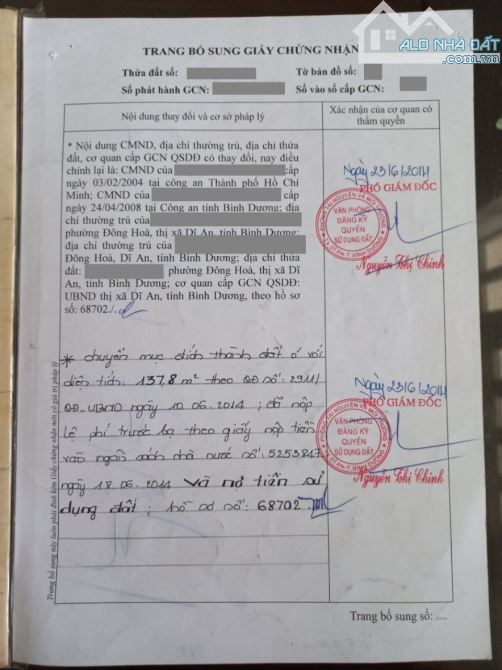 ALO NHÀ ĐẤT
.com.vn
TRANG BỔ SUNG GIẤY CHỨNG NHẬN
Thửa đất số: Tờ bản đồ số:
Số phát hành GCN: Số vào sổ cấp GCN:
Nội dung thay đổi và cơ sở pháp lý
Xác nhận của cơ quan có
thẩm quyền
* Nội dung CMND, địa chỉ thường trú, địa chỉ thửa
đất, cơ quan cấp GCN QSDĐ có thay đổi, nay điều
chỉnh lại là: CMND của cấp
ngày 03/02/2004 tại công an Thành phố Hồ Chí
Minh; CMND của cấp
ngày 24/04/2008 tại Công an tỉnh Bình Dương; địa
chỉ thường trú của ông
phường Đông Hoà, thị xã Dĩ An, tỉnh Bình Dương;
địa chỉ thường trú của
Đông Hoà, Dĩ An, tỉnh Bình Dương; địa chỉ thửa
đất: phường Đông Hoà, thị xã Dĩ
An, tỉnh Bình Dương; cơ quan cấp GCN QSDĐ:
UBND thị xã Dĩ An, tỉnh Bình Dương, theo hồ sơ
số: 68702./.
Ngày 23/6/2014
PHÓ GIÁM ĐỐC
VĂN PHÒNG
ĐĂNG KÝ
QUYỀN
SỬ DỤNG ĐẤT
Nguyễn Thị Chinh
* chuyển mục đích thành đất ở với
diện tích: 137,8 m² theo QĐ số: 2911/
QĐ.UBND ngày 10.06.2014; đã nộp
lệ phí trước bạ theo giấy nộp tiền
vào ngân sách nhà nước số: 5253847
ngày 18.06.2014 và nợ tiền sử
dụng đất; hồ sơ số: 68702
Ngày 23/6/2014
PHÓ GIÁM ĐỐC
VĂN PHÒNG
ĐĂNG KÝ
QUYỀN
SỬ DỤNG ĐẤT
Nguyễn Thị Chinh
Trang bổ sung này luôn phải đính kèm Giấy chứng nhận mới có giá trị pháp lý
Trang bổ sung số: ....